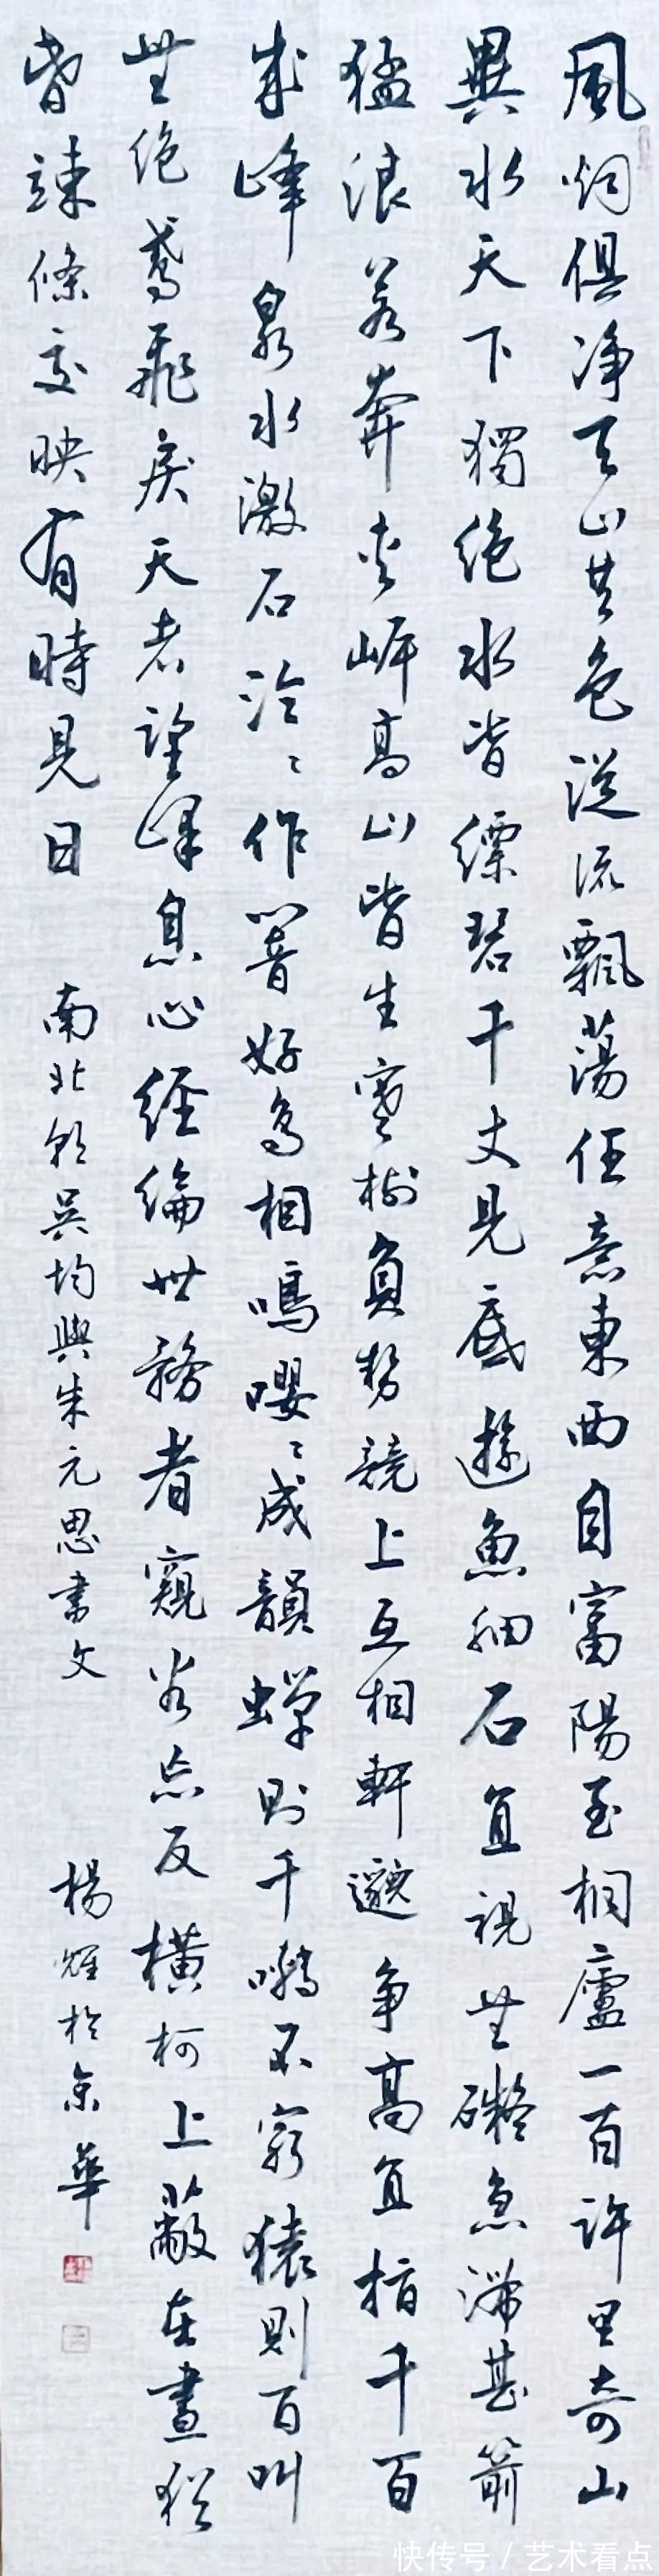 風烟俱净天山共色從流飄蕩任意東西自富陽至桐廬一百許里奇山
異水天下獨絶水皆縹碧千丈見底遊魚細石直視無礙急湍甚箭
猛浪若奔夾岸高山皆生寒樹負勢競上互相軒邈爭高直指千百
成峰泉水激石泠〻作響好鳥相鳴嚶〻成韻蟬則千囀不窮猿則百叫
無絶鳶飛戾天者望峰息心經綸世務者窺谷忘反橫柯上蔽在晝猶
昏疎條交映有時見日 南北朝吳均與朱元思書文 楊耀於京華
快传号 / 艺术看点